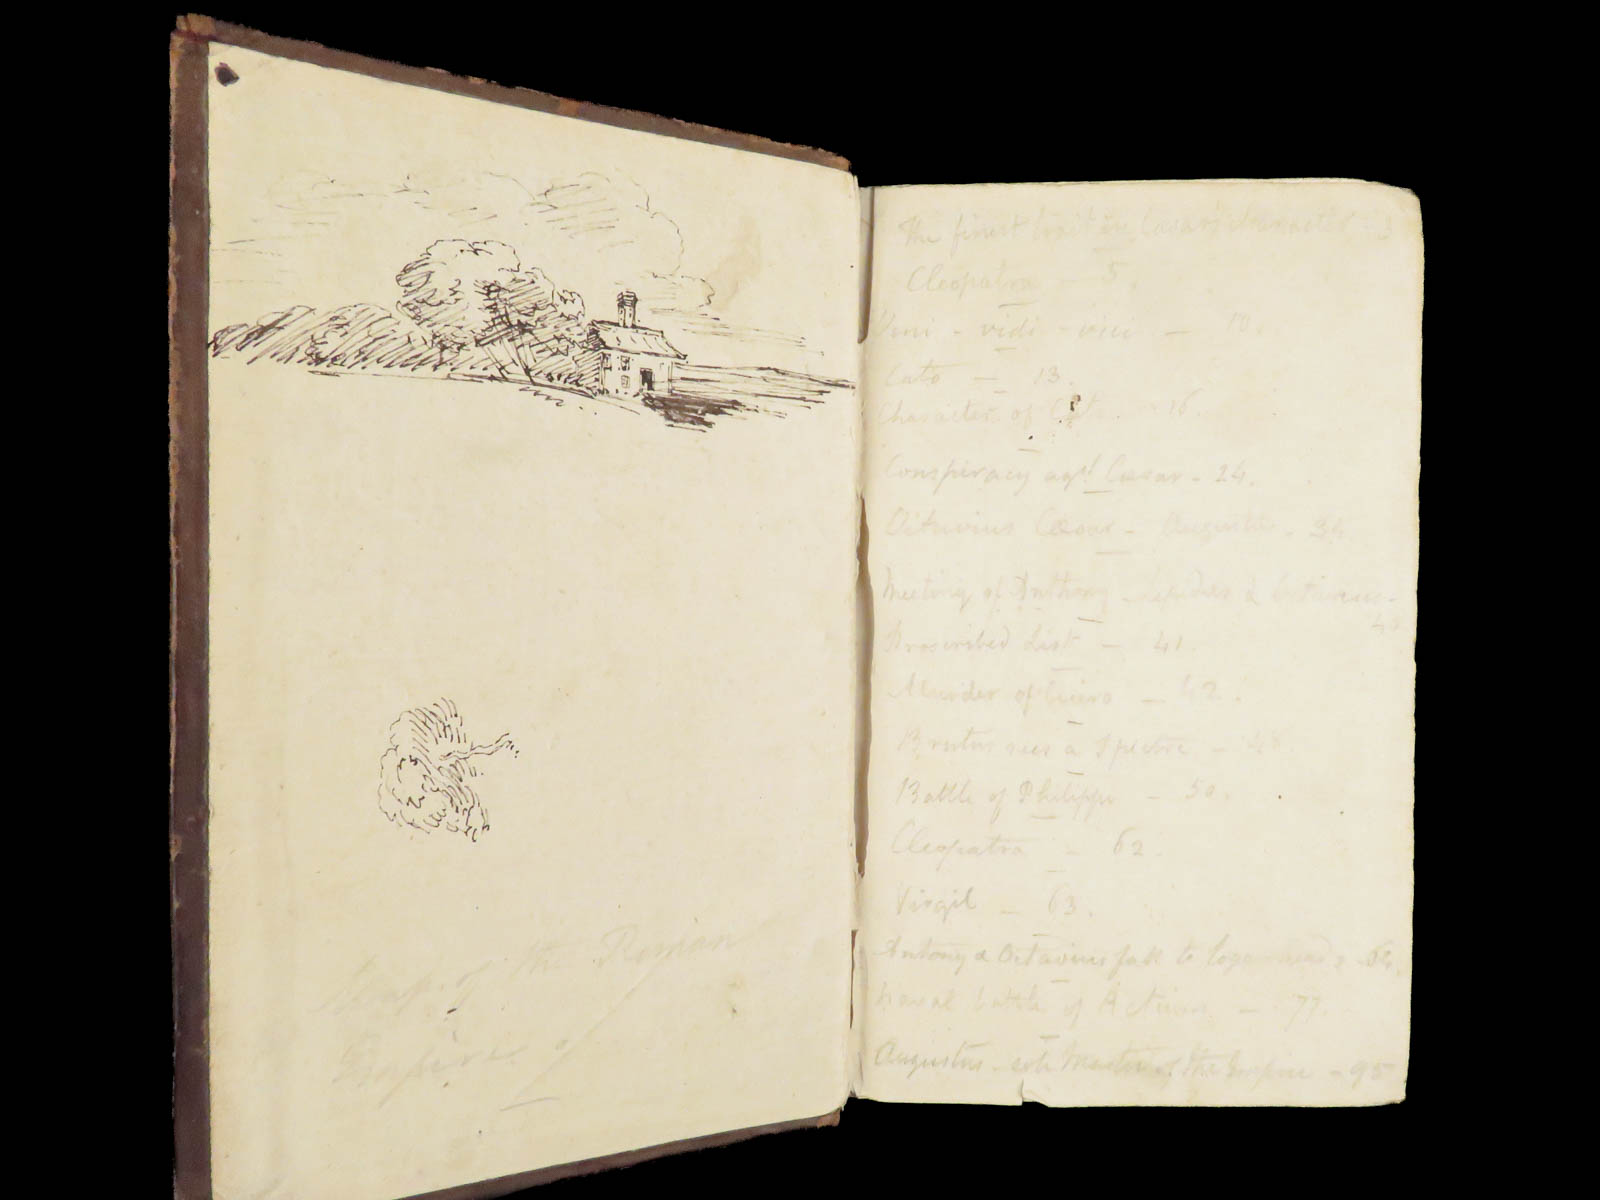 Map of the Roman
Empire
The finest trait in Caesar's Character - 3
Cleopatra - 5.
Veni - vidi - vici - 10.
Cato - 13.
Character of Cato - 16.
Conspiracy agst Caesar - 24.
Octavius Caesar - Augustus - 34
Meeting of Anthony - Lepidus & Octavius -
Proscribed List - 41.
Murder of Cicero - 42.
Brutus sees a Spectre - 48.
Battle of Philippi - 50.
Cleopatra - 62.
Virgil - 63.
Antony & Octavius fall to - 64.
Naval battle of Actium - 77.
Augustus - sole Master of the Empire - 95